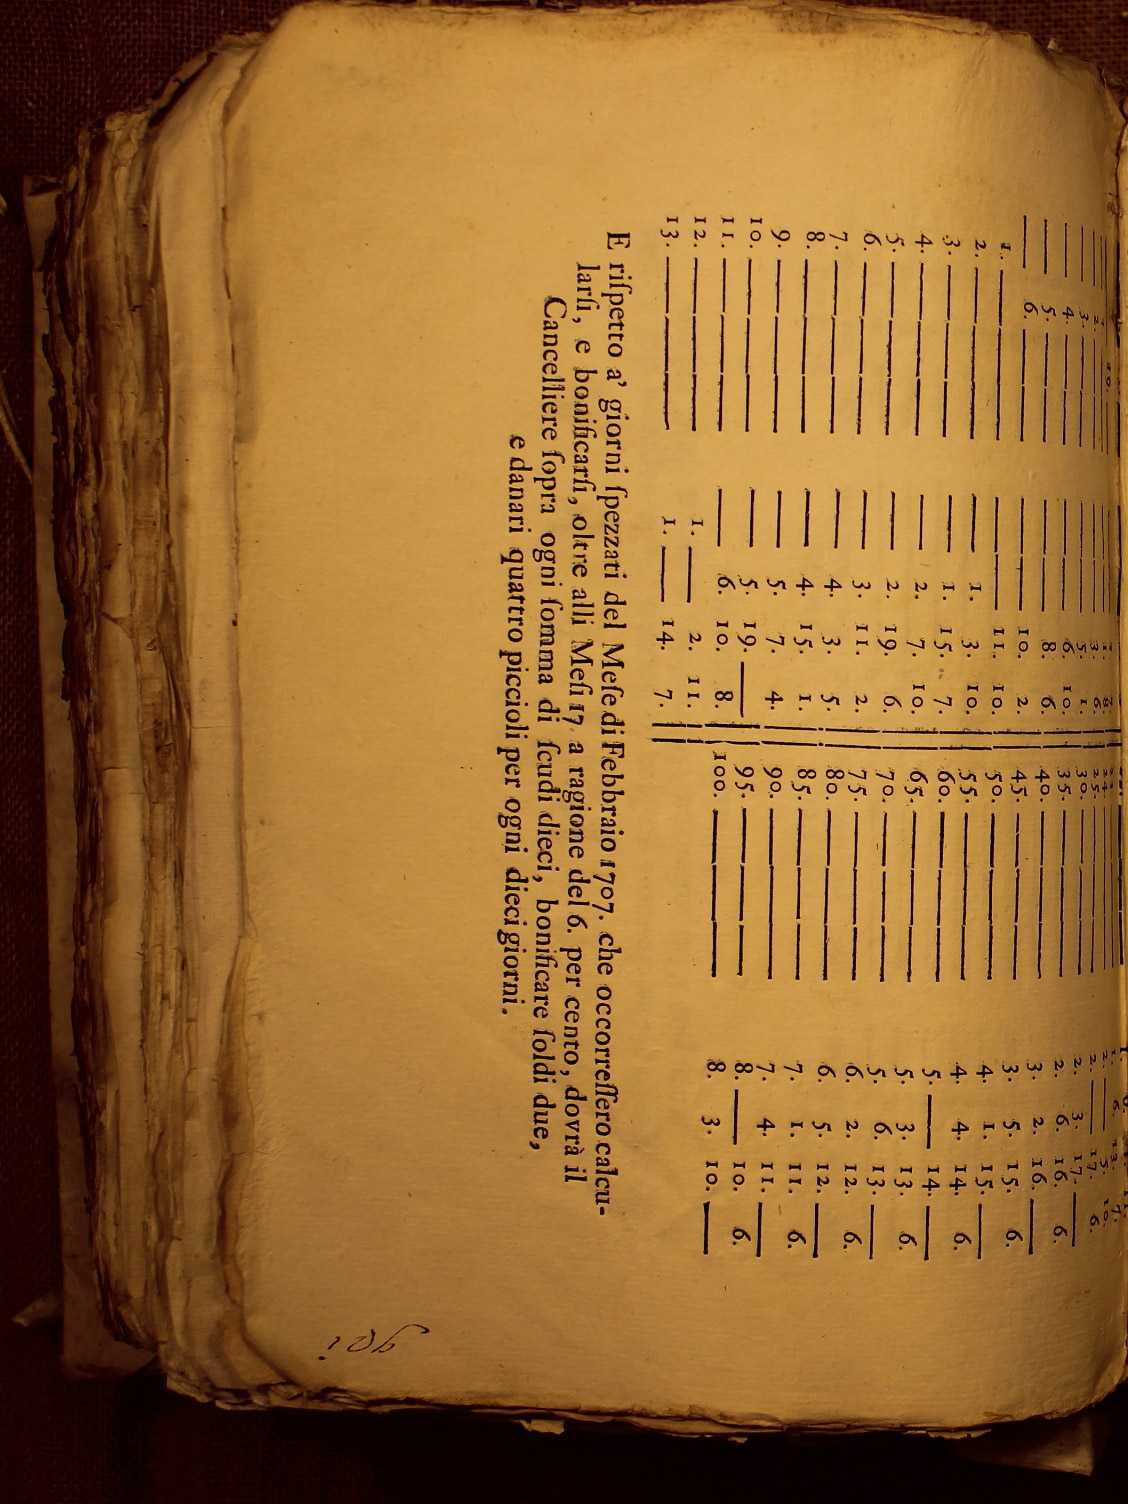 — 2. — — 3. 6. 25. — 2. — 17. 6.
— 3. — — 5. 1. 30. — 2. 3. 17. —
— 4. — — 6. 10. 35. — 2. 6. 16. 6.
— 5. — — 8. 6. 40. — 3. 2. 16. —
— 6. — — 10. 2. 45. — 3. 5. 15. 6.
1. — — 11. 10. 50. — 4. 1. 15. —
2. — — 1. 3. 10. 55. — 4. 4. 14. 6.
3. — — 1. 15. 7. 60. — 5. — 14. —
4. — — 2. 7. 10. 65. — 5. 3. 13. 6.
5. — — 2. 19. 6. 70. — 5. 6. 13. —
6. — — 3. 11. 2. 75. — 6. 2. 12. 6.
7. — — 4. 3. 5. 80. — 6. 5. 12. —
8. — — 4. 15. 1. 85. — 7. 1. 11. 6.
9. — — 5. 7. 4. 90. — 7. 4. 11. —
10. — — 5. 19. — 95. — 8. — 10. 6.
11. — — 6. 10. 8. 100. — 8. 3. 10. —
12. — 1. — 2. 11.
13. — 1. — 14. 7.
E riſpetto a' giorni ſpezzati del Meſe di Febbraio 1707. che occorreſſero calcu-
larſi, e bonificarſi, oltre alli Meſi 17. a ragione del 6. per cento, dovrà il
Cancelliere ſopra ogni ſomma di ſcudi dieci, bonificare ſoldi due,
e danari quattro piccioli per ogni dieci giorni.